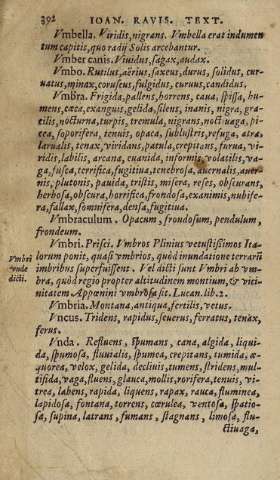 392 IOAN. RAVIS. TEXT.
Vmbella. Viridis, nigrans. Vmbella erat indumen
tum capitis, quo radij Solis arcebantur.
Vmber canis. Viuidus, sagax, audax.
Vmbo. Rutilus, aërius, saxeus, durus, solidus, cur-
uatus, minax, coruscus, fulgidus, curuus, candidus.
Vmbra. Frigida, pallens, horrens, caua, spissa, hu-
mens, cæca, exanguis, gelida, silens, inanis, nigra, gra-
cilis, nocturna, turpis, tremula, nigrans, nocti uaga, pi-
cea, soporifera, tenuis, opaca, sublustris, refuga, atra,
larualis, tenax, viridans, patula, crepitans, furua, vi-
ridis, labilis, arcana, cuanida, informis, volatilis, va-
ga, fusca, terrifica, fugitiua, tenebrosa, auernalis, auer-
nis, plutonis, pauida, tristis, misera, reses, obscurans,
herbosa, obscura, horrifica, frondosa, exanimis, nubife-
ra, fallax, somnifera, densa, fugitiua.
Vmbraculum. Opacum, frondosum, pendulum,
frondeum.
Vmbri. Prisci. Vmbros Plinius vetustissimos Ita-
lorum ponit, quasi ymbrios, quòd inundatione terrarū
Vmbri
vnde
dicti.
imbribus superfuissent. Vel dicti sunt Vmbri ab vm-
bra, quòd regio propter altitudinem montium, & vici-
nitatem Appœnini vmbrosa sit. Lucan. lib. 2.
Vmbria. Montana, antiqua, fertilis, vetus.
Vncus. Tridens, rapidus, seuerus, ferratus, tenax,
ferus.
Vnda. Refluens, spumans, cana, algida, liqui-
da, spumosa, fluuialis, spumea, crepitans, tumida, æ-
quorea, velox, gelida, decliuis, tumens, stridens, mul-
tifida, vaga, fluens, glauca, mollis, rorifera, tenuis, vi-
trea, labens, rapida, liquens, rapax, rauca, fluminea,
lapidosa, fontana, torrens, cœrulea, ventosa, spatio-
sa, supina, latrans, fumans, stagnans, limosa, flu-
ctiuaga,